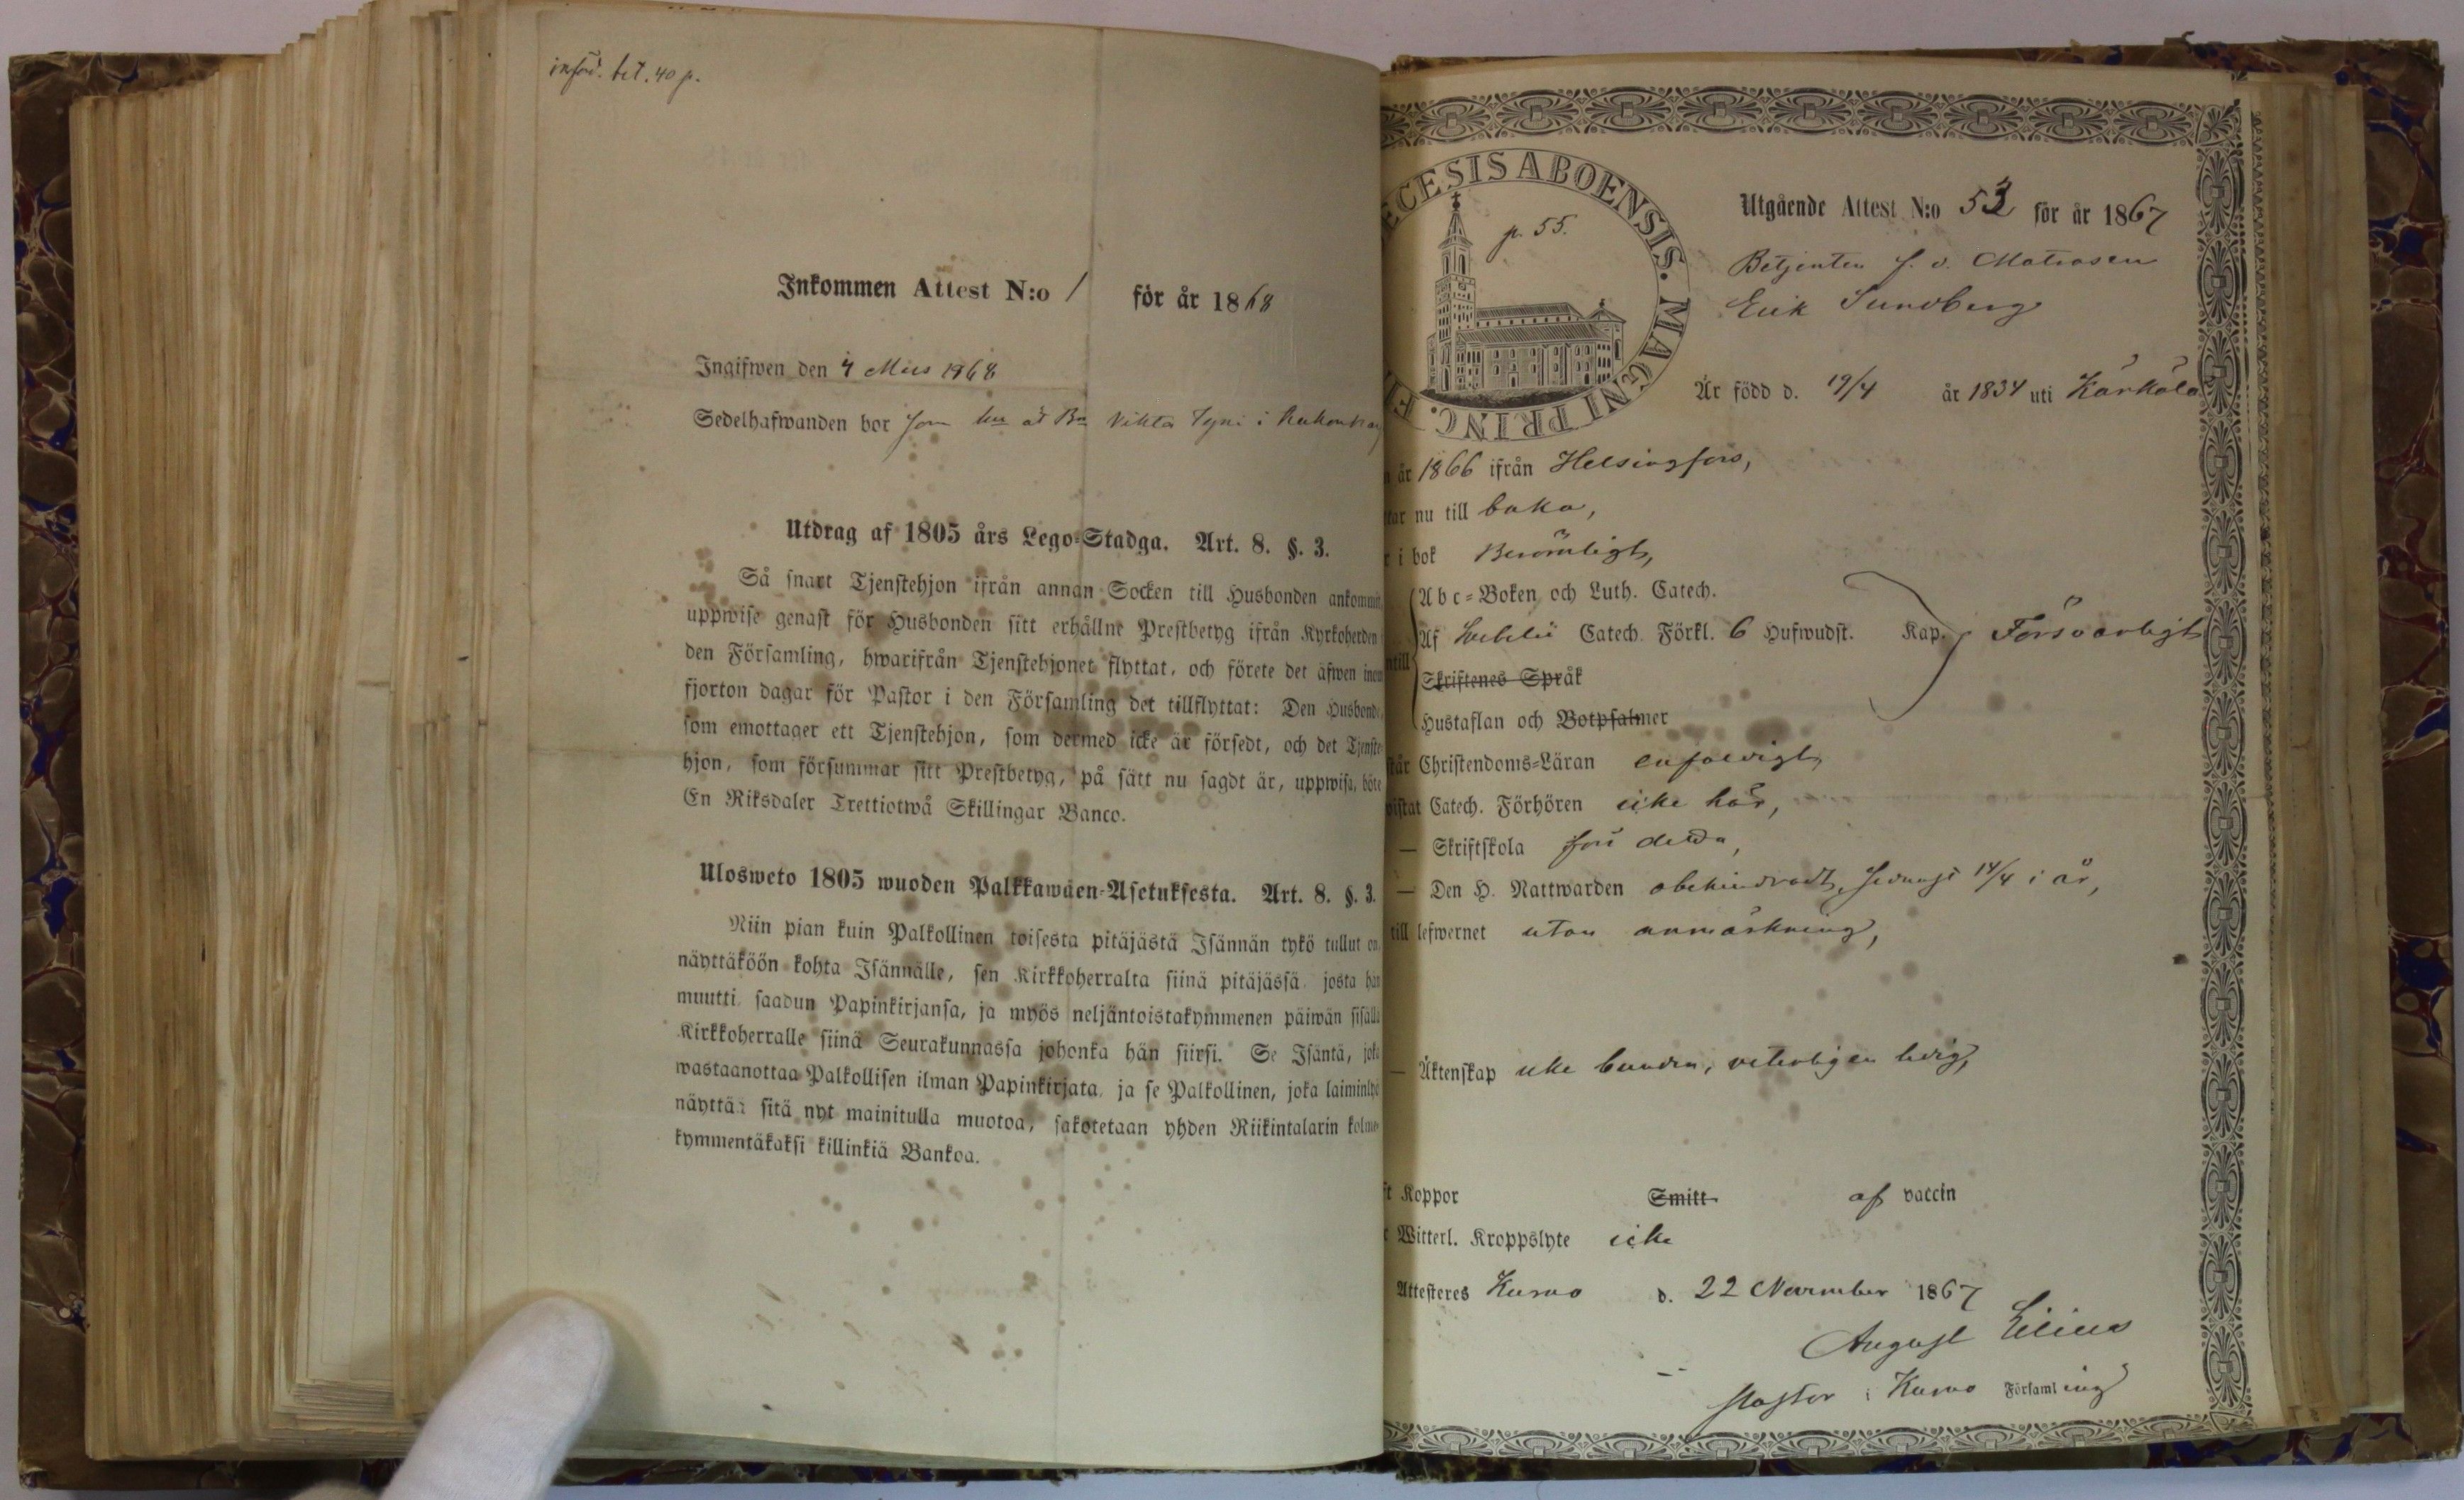 införd. bet. 40 p.
Inkommen Attest N:o 1 för år 1868
Ingifwen den 4 Mars 1868
Sedelhafwanden bor som åt Viktor i
Utdrag af 1805 års Lego-Stadga. Art. 8. §. 3.
Så snart Tjenstehjon ifrån annan Socken till Husbonden ankommit,
uppwise genast för Husbonden sitt erhållne Prestbetyg ifrån Kyrkoherden
den Församling, hwarifrån Tjenstehjonet flyttat, och förete det äfwen inom
fjorton dagar för Pastor i den Församling det tillflyttat: Den Husbonde,
som emottager ett Tjenstehjon, som dermed icke är försedt, och det Tjenste-
hjon, som försummar sitt Prestbetyg, på sätt nu sagdt är, uppwisa, böte
En Riksdaler Trettiotwå Skillingar Banco.
Ulosweto 1805 wuoden Palkkawäen-Asetuksesta. Art. 8. §. 3.
Niin pian kuin Palkollinen toisesta pitäjästä Isännän tykö tullut on,
näyttäköön kohta Isännälle, sen Kirkkoherralta siinä pitäjässä, josta hän
muutti, saadun Papinkirjansa, ja myös neljäntoistakymmenen päiwän sisällä
Kirkkoherralle siinä Seurakunnassa johonka hän siirsi. Se Isäntä, joka
wastaanottaa Palkollisen ilman Papinkirjata, ja se Palkollinen, joka laiminlyö
näyttää sitä nyt mainitulla muotoa, sakotetaan yhden Riikintalarin kolme-
kymmentäkaksi killinkiä Bankoa.
ECESIS ABOENSIS. MAGNI PRINC. FI
p. 55.
Utgående Attest N:o 53 för år 1867
Betjenten f. d. Matrosen
Erik Sundberg
Är född d. 19/4 år 1834 uti Kärkölä
år 1866 ifrån Helsingfors,
tar nu till baka,
r i bok Berömligt,
Abc-Boken och Luth. Catech.
Af Svebelii Catech. Förkl. 6 Hufwudst. Kap. Försvarligt
ntill
Skriftenes Språk
Hustaflan och Botpsalmer
står Christendoms-Läran enfaldigt,
wistat Catech. Förhören icke här,
— Skriftskola för detta,
— Den H. Nattwarden obehindradt, sednast 14/4 i år,
till lefwernet utan anmärkning,
— Äktenskap icke bunden, veterligen ledig,
ft Koppor Smitt af vaccin
r Witterl. Kroppslyte icke
Attesteres Kumo d. 22 November 1867
August Lilius
Pastor i Kumo Församling